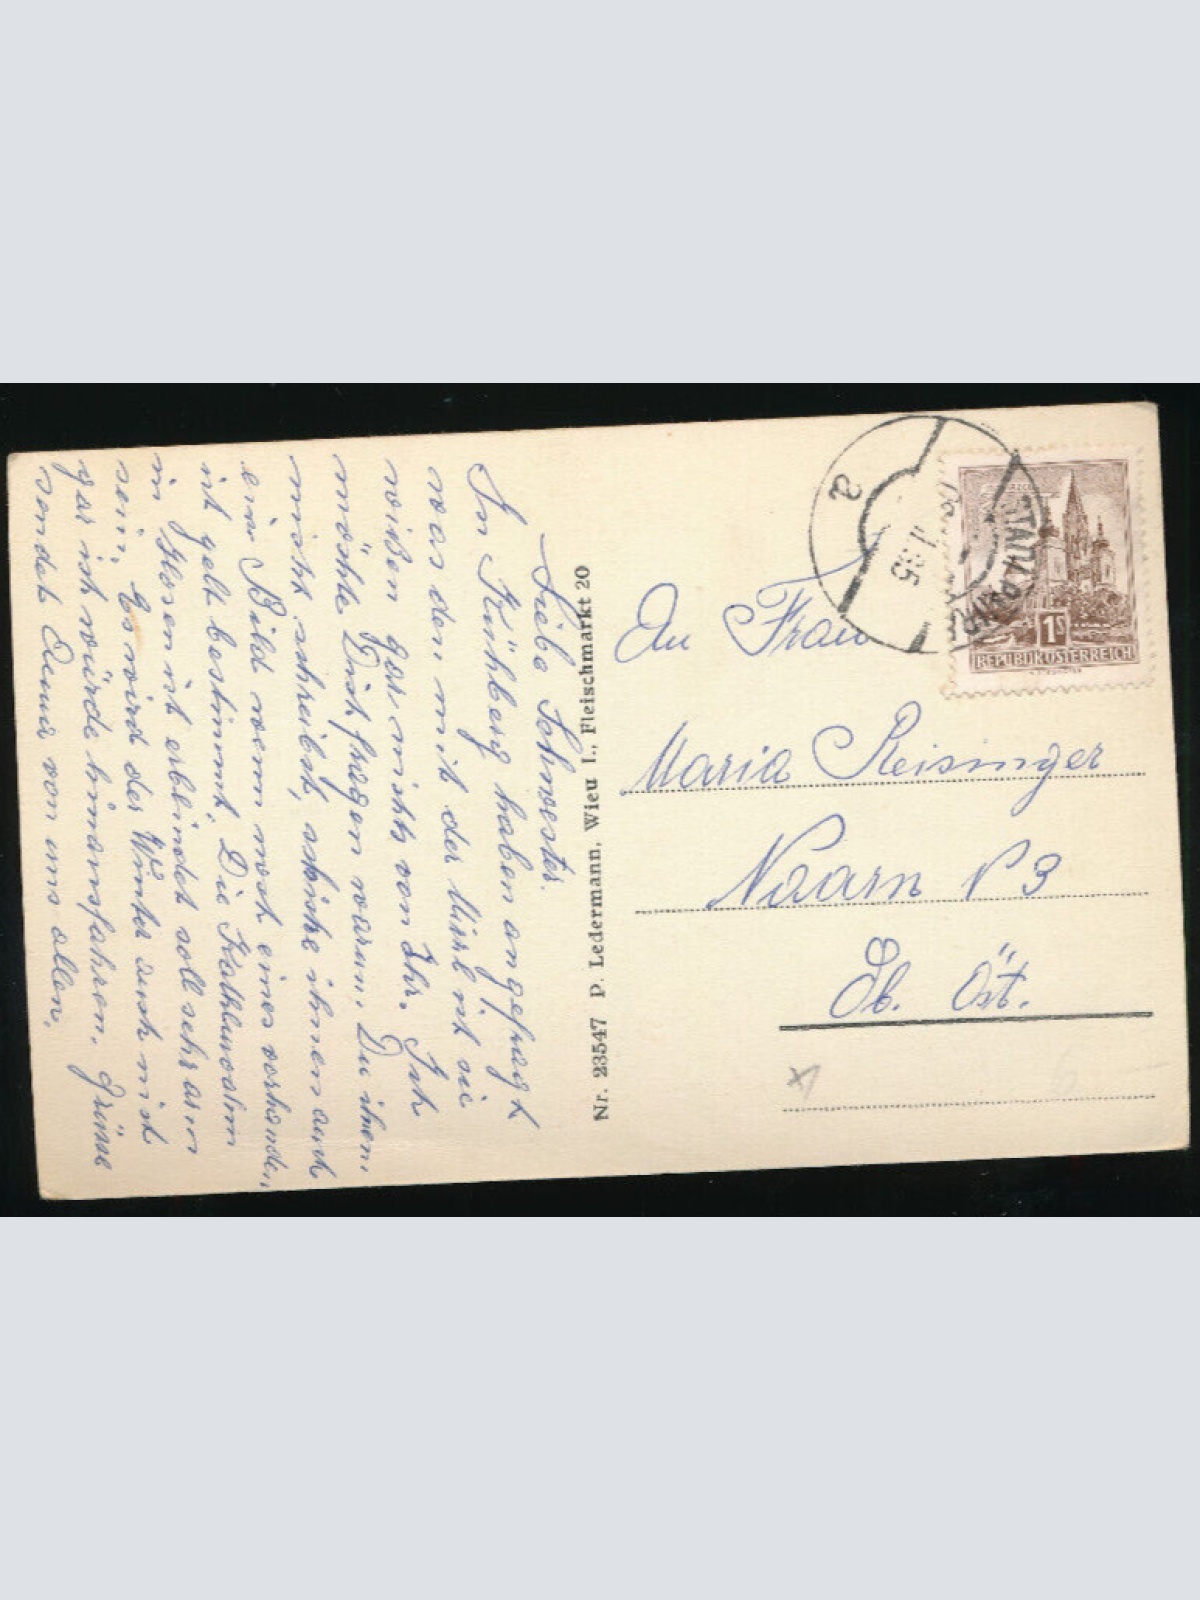 Liebe Schwester.
In Künberg haben angefragt
was den mit der Missl ist sie
wißen gar nichts von Ihr. Ich
möchte Dich fragen warum Du ihnen
nicht schreibst, schicke ihnen auch
ein Bild wenn noch eines vorhanden
ist gelt bestimmt. Die
in ist erblindet soll sehr arm
sein. Es wird der Winter auch nicht
gar ich würde hinausfahren. Grüsse
sendet Euch von uns allen.
Nr. 23547 P. Ledermann, Wien I., Fleischmarkt 20
An Frau
Maria Reisinger
Naarn N 3
Ob. Öst.
a
11.65
1S
REPUBLIK ÖSTERREICH